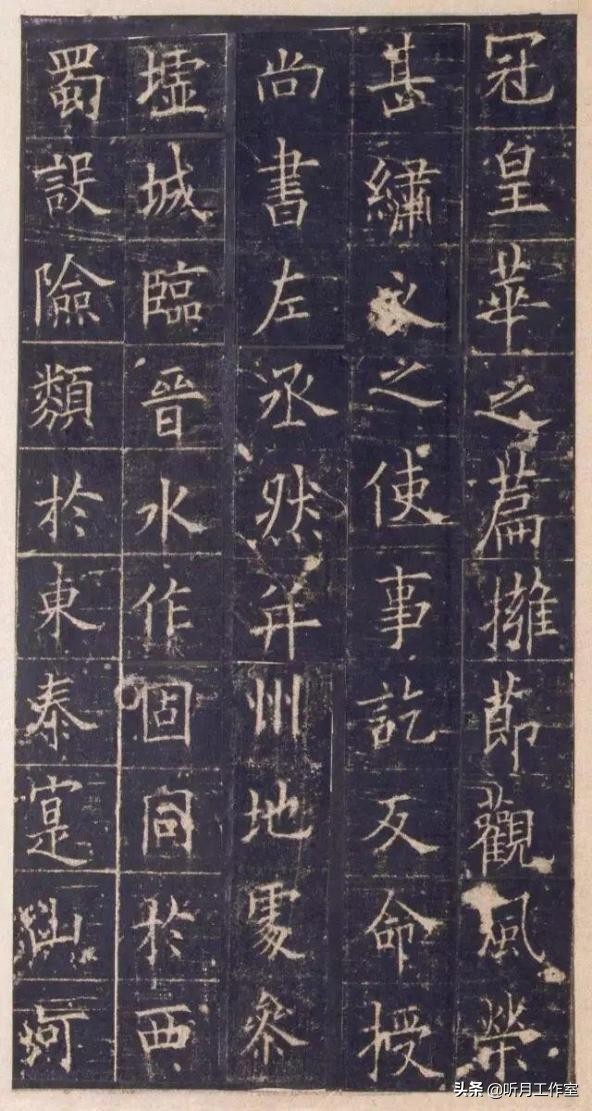 冠皇華之篇擁節觀風榮
甚繡衣之使事訖反命授
尚書左丞然并州地處參
墟城臨晉水作固同於西
蜀設險類於東秦寔山河
头条 @听月工作室